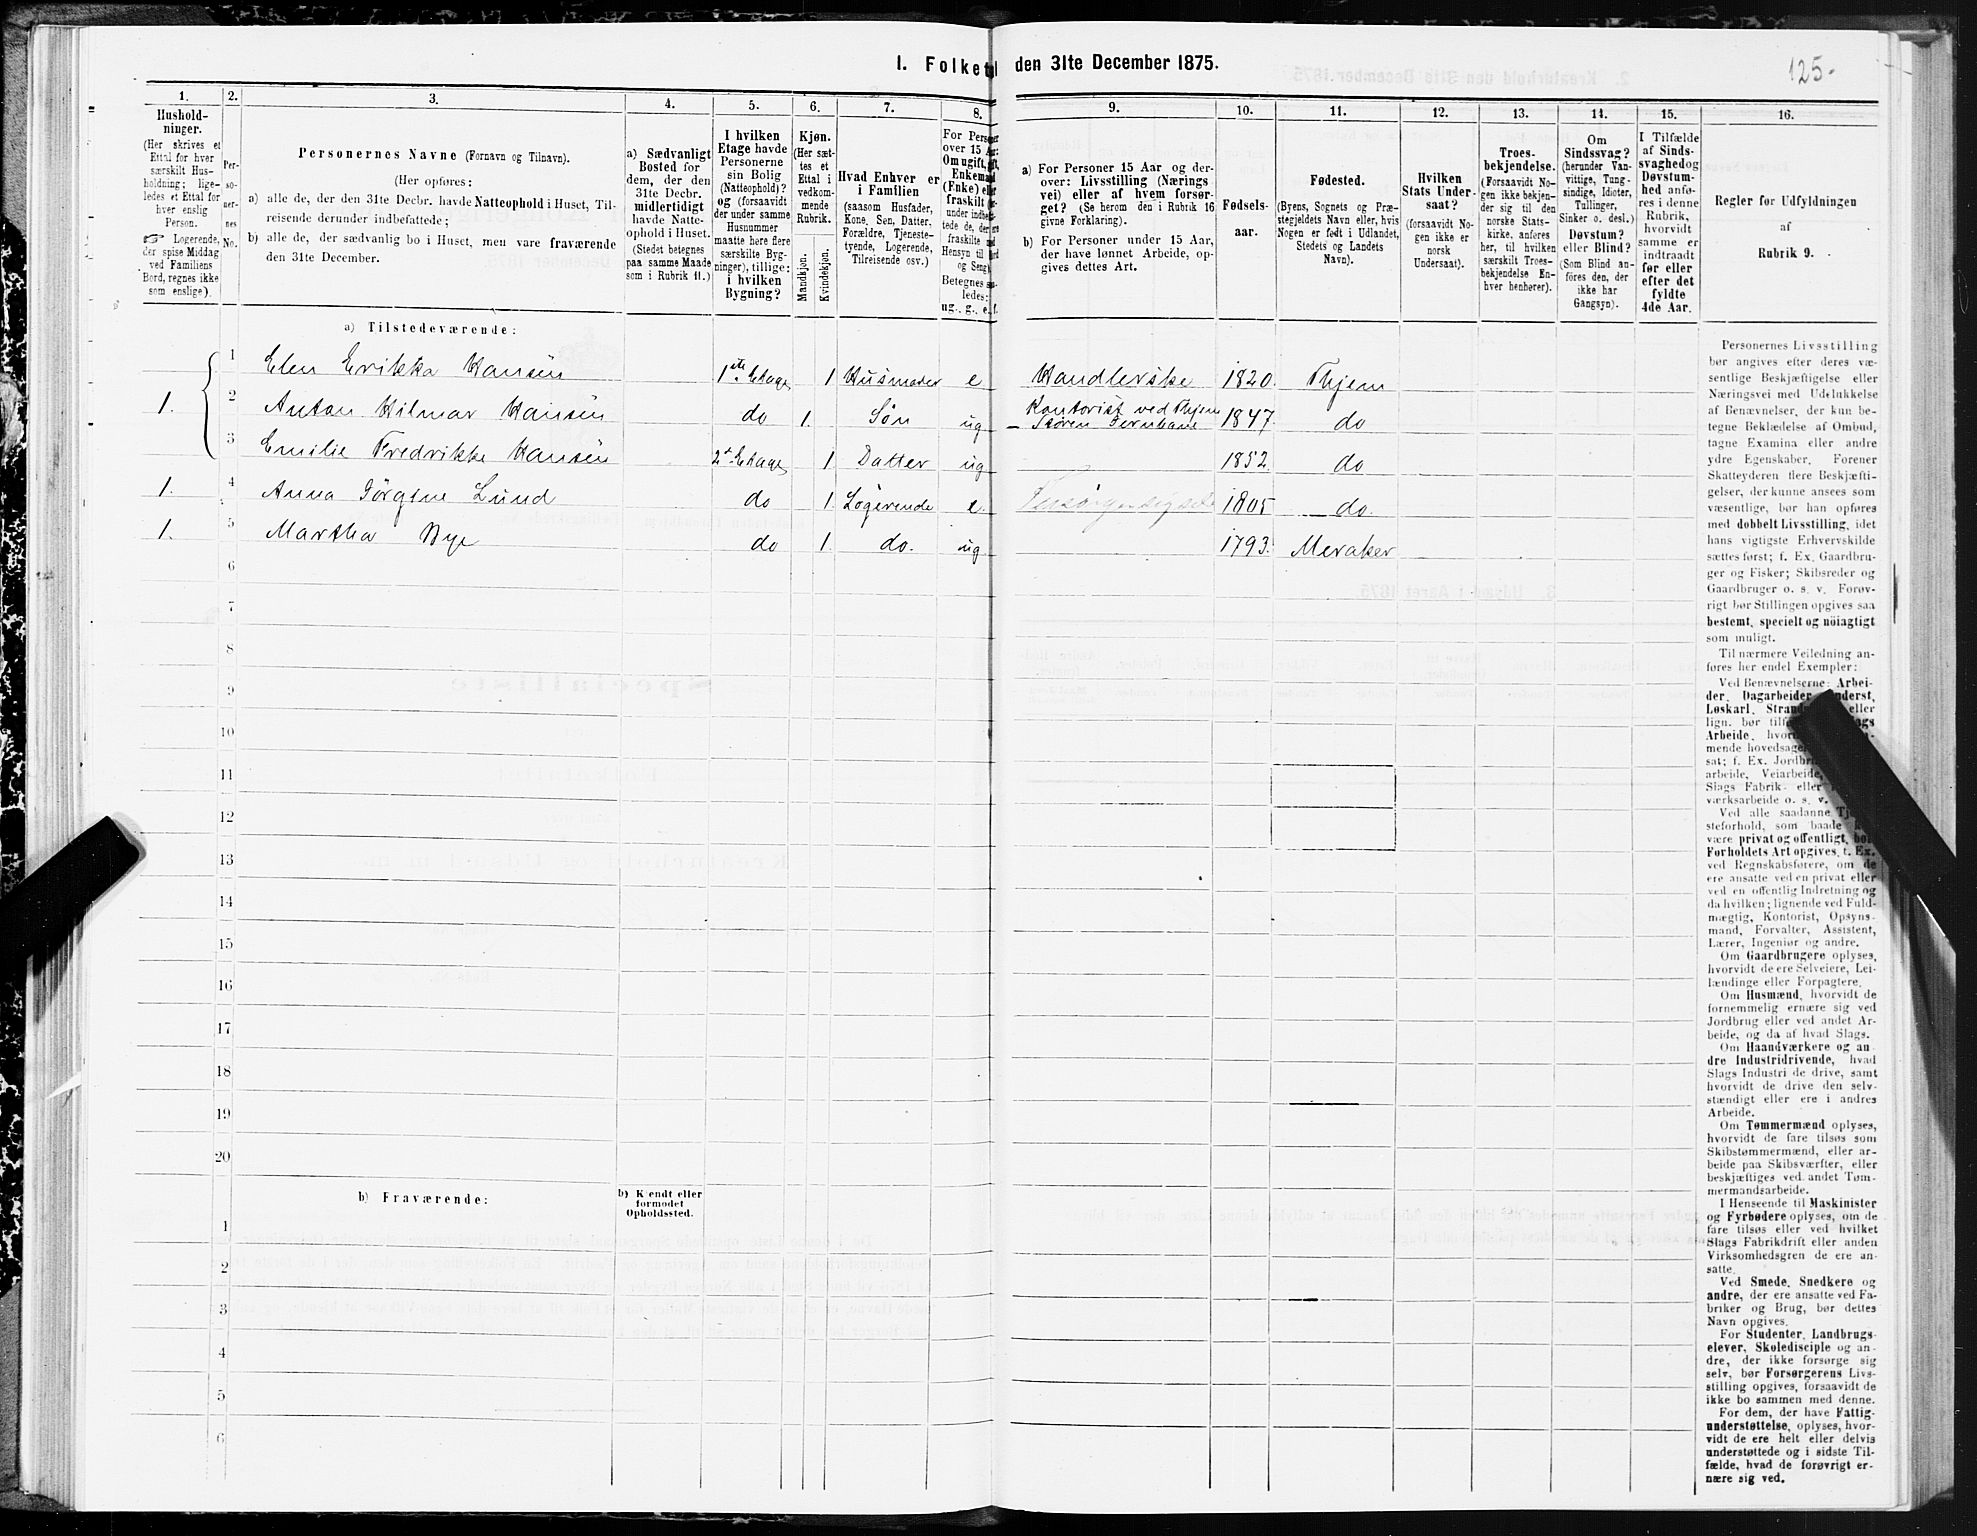 125.
I. Folketal den 31te December 1875.
1. 2. 3. 4. 5. 6. 7. 8. 9. 10. 11. 12. 13. 14. 15. 16.
Hushold-
ninger.
(Her skrives et
Ettal for hver
særskilt Hus-
holdning; lige-
ledes et Ettal for
hver enslig
Person.
☞ Logerende,
der spise Middag
ved Familiens
Bord, regnes ikke
som enslige).
Per-
so-
ner-
nes
No.
Personernes Navne (Fornavn og Tilnavn).
(Her opføres:
a) alle de, der den 31te Decbr. havde Natteophold i Huset, Til-
reisende derunder indbefattede;
b) alle de, der sædvanlig bo i Huset, men vare fraværende
den 31te December.
a) Sædvanligt
Bosted for
dem, der den
31te Decbr.
midlertidigt
havde Natte-
ophold i Huset.
(Stedet betegnes
paa samme Maade
som i Rubrik 11.)
I hvilken
Etage havde
Personerne
sin Bolig
(Natteophold)?
og (forsaavidt
der under samme
Husnummer
maatte høre flere
særskilte Byg-
ninger), tillige:
i hvilken
Bygning?
Kjøn.
(Her sæt-
tes et
Ettal i
vedkom-
mende
Rubrik.
Mandkjøn.
Kvindekjøn.
Hvad Enhver er
i Familien
(saasom Husfader,
Kone, Søn, Datter,
Forældre, Tjeneste-
tyende, Logerende,
Tilreisende osv.)
For Personer
over 15 Aar:
Om ugift, gift,
Enkemand
(Enke) eller
fraskilt
Betegnes
ledes:
ug., g., e., f.
a) For Personer 15 Aar og der-
over: Livsstilling (Nærings
vei) eller af hvem forsør-
get? (Se herom den i Rubrik 16
givne Forklaring).
b) For Personer under 15 Aar,
der have lønnet Arbeide, op-
gives dettes Art.
Fødsels-
aar.
Fødested.
(Byens, Sognets og Præ-
stegjeldets Navn eller, hvis
Nogen er født i Udlandet,
Stedets og Landets
Navn).
Hvilken
Stats Under-
saat?
(forsaavidt No-
gen ikke er
norsk
Undersaat).
Troes-
bekjendelse.
(Forsaavidt No-
gen ikke bekjen-
der sig til den
norske Stats-
kirke, anføres
her, til hvilken
særskilt Troes-
bekjendelse En-
hver henhører).
Om
Sindssvag?
(herunder Van-
vittige, Tung-
sindige, Idioter,
Tullinger,
Sinker o. desl.)
Døvstum?
eller Blind?
(Som Blind an-
føres den, der
ikke har
Gangsyn).
I Tilfælde
af Sinds-
svaghed og
Døvstum-
hed anfø-
res i denne
Rubrik,
hvorvidt
samme er
indtraadt
før eller
efter det
fyldte
4de Aar.
Regler for Udfyldningen
af
Rubrik 9.
a) Tilstedeværende:
1 Elen Erikka Hansen 1ste Etage 1 Husmoder e Handlerske 1820 Thjem
1. 2 Anton Hilmar Hansen do 1. Søn ug Kontorist ved Thjem Støren Jernbane 1847. do
3 Emilie Fredrikke Hansen 2d Etage 1 Datter ug 1852 do
1. 4 Anna Jørgine Lund do 1 Logerende e. 1805 do.
1. 5 Martha Bye do 1. do. ug 1793. Meraker
6
7
8
9
10
11
12
13
14
15
16
17
18
19
20
b) Fraværende:
b) Kjendt eller
formodet
Opholdssted.
1
2
3
4
5
6
Personernes Livsstilling
bør angives efter deres væ-
sentlige Beskjæftigelse eller
Næringsvei med Udelukkelse
af Benævnelser, der kun be-
tegne Beklædelse af Ombud,
tagne Examina eller andre
ydre Egenskaber. Forener
Skatteyderen flere Beskjæfti-
gelser, der kunne ansees som
væsentlige, bør han opføres
med dobbelt Livsstilling, idet
hans vigtigste Erhvervskilde
sættes først; f. Ex. Gaardbru-
ger og Fisker; Skibsreder og
Gaardbruger o. s. v. Forøv-
rigt bør Stillingen opgives saa
bestemt, specielt og nöiagtigt
som muligt.
Til nærmere Veiledning an-
føres her endel Exempler:
Ved Benævnelserne: Arbei-
der, Dagarbeider, Inderst,
Løskarl, eller
lign. bør
Arbeide,
mende
sat; f. Ex.
arbeide, Veiarbeide,
Slags Fabrik- eller
værksarbeide o. s. v.
Ved alle saadanne
steforhold, som baade
være privat og offentligt, bør
Forholdets Art opgives, f. Ex.
ved Regnskabsførere, om de
ere ansatte ved en privat eller
ved en offentlig Indretning og
da hvilken; lignende ved Fuld-
mægtig, Kontorist, Opsyns-
mand, Forvalter, Assistent,
Lærer, Ingeniør og andre.
Om Gaardbrugere oplyses,
hvorvidt de ere Selveiere, Lei-
lændinge eller Forpagtere.
Om Husmænd, hvorvidt de
fornemmelig ernære sig ved
Jordbrug eller ved andet Ar-
beide, og da af hvad Slags.
Om Haandværkere og an-
dre Industridrivende, hvad
Slags Industri de drive, samt
hvorvidt de drive den selv-
stændigt eller ere i andres
Arbeide.
Om Tømmermænd oplyses,
hvorvidt de fare tilsøs som
Skibstømmermænd, eller ar-
beide paa Skibsværfter, eller
beskjæftiges ved andet Tøm-
mermandsarbeide.
I Henseende til Maskinister
og Fyrbødere oplyses, om de
fare tilsøs eller ved hvilket
Slags Fabrikdrift eller anden
Virksomhedsgren de ere an-
satte.
Ved Smede, Snedkere og
andre, der ere ansatte ved Fa-
briker og Brug, bør dettes
Navn opgives.
For Studenter, Landbrugs-
elever, Skoledisciple og an-
dre, der ikke forsørge sig
selv, bør Forsørgerens Livs-
stilling opgives, forsaavidt de
ikke bo sammen med denne.
For dem, der have Fattig-
understøttelse, oplyses, hvor-
vidt de ere helt eller delvis
understøttede og i sidste Til-
fælde, hvad de forøvrigt er-
nære sig ved.